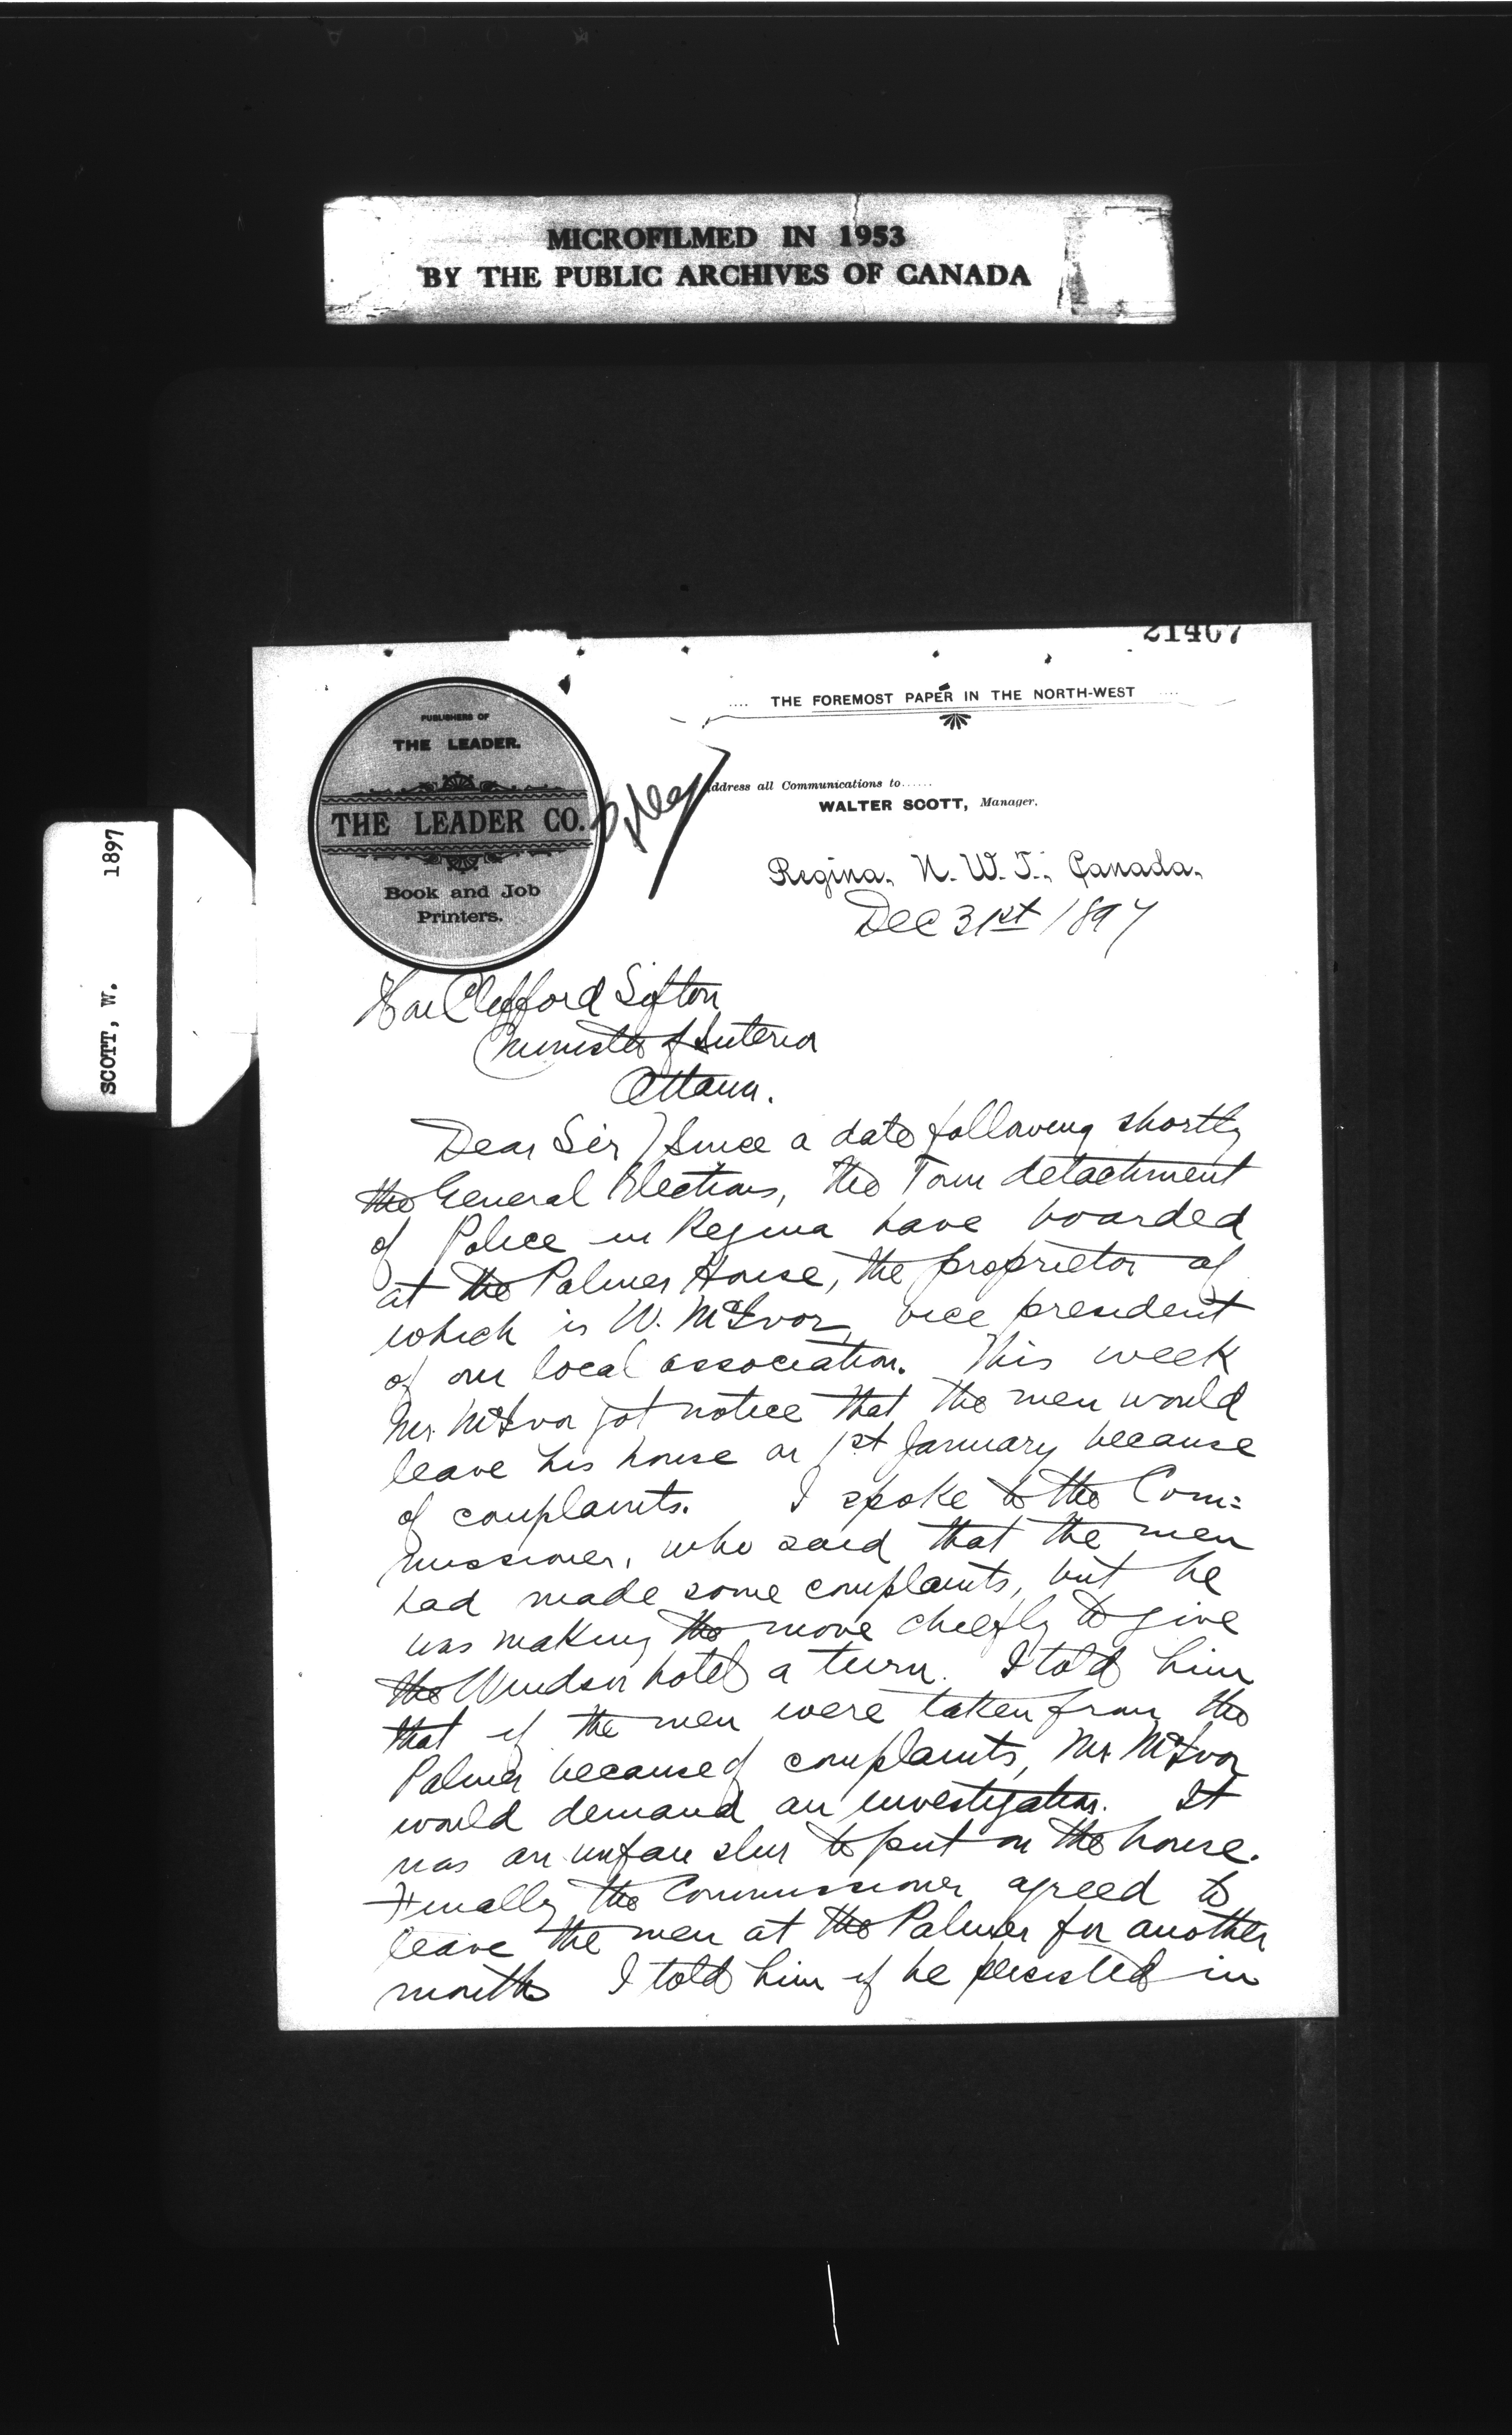 MICROFILMED IN 1953
BY THE PUBLIC ARCHIVES OF CANADA
SCOTT, W. 1897
21407
THE FOREMOST PAPER IN THE NORTH-WEST
PUBLISHERS OF
THE LEADER.
THE LEADER CO.
Book and Job
Printers.
Address all Communications to......
WALTER SCOTT, Manager.
Regina, N. W. T., Canada,
Dec 31st 1897
Hon Clifford Sifton
Minister of Interior
Ottawa.
Dear Sir) Since a date following shortly
the General Elections, the Town detachment
of Police in Regina have boarded
at the Palmer House, the proprietor of
which is W. McIvor, vice president
of our local association. This week
Mr. McIvor got notice that the men would
leave his house on 1st January because
of complaints. I spoke to the Com=
missioner, who said that the men
had made some complaints, but he
was making the move chiefly to give
the Windsor hotel a turn. I told him
that if the men were taken from the
Palmer because of complaints, Mr. McIvor
would demand an investigation. It
was an unfair slur to put on the house.
Finally the Commissioner agreed to
leave the men at the Palmer for another
month I told him if he persisted in